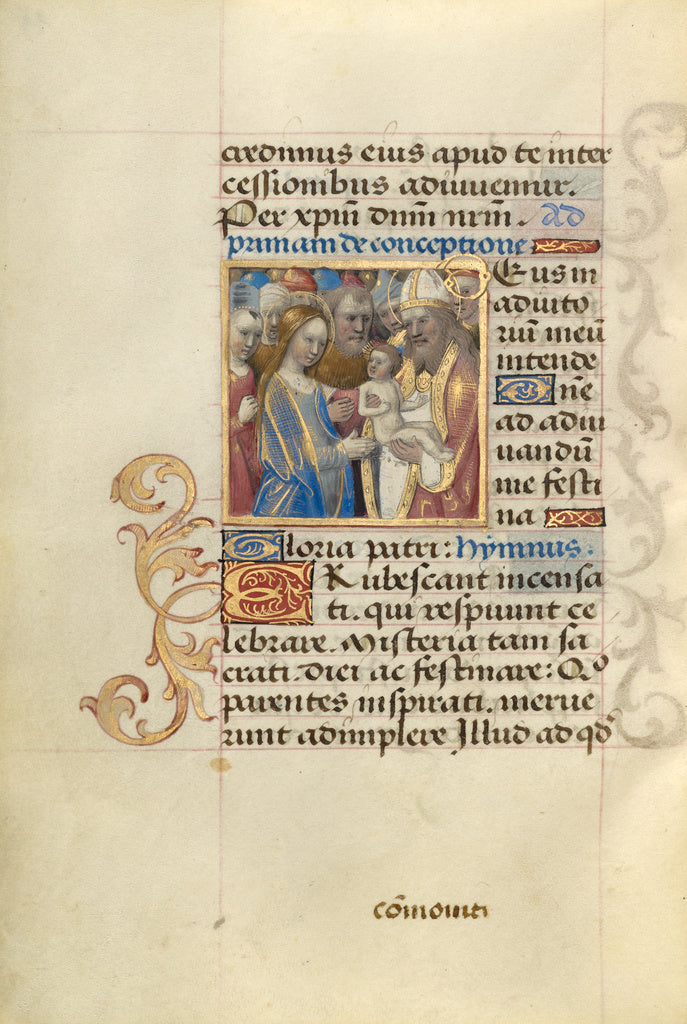 credimus eius apud te inter
cessionibus adiuuemur.
Per xp̄m dn̄m nr̄m. ad
primam de conceptione
Eus in
adiuto
riū meū
intende
Dn̄e
ad adiu
uandū
me festi
na
Gloria patri: hymnus.
ERubescant incensa
ti. qui respuunt ce
lebrare. Misteria tam sa
crati. diei ac festinare: Qo
parentes inspirati. merue
runt adimplere Illud ad qd
cōmoniti